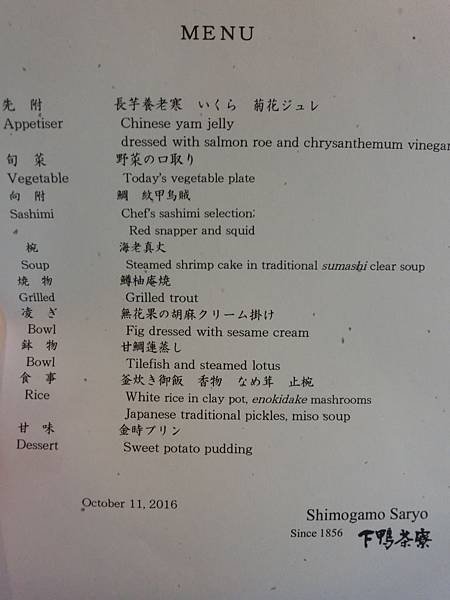 MENU
先附 長芋養老寒 いくら 菊花ジュレ
Appetiser Chinese yam jelly
dressed with salmon roe and chrysanthemum vinegar
旬菜 野菜の口取り
Vegetable Today's vegetable plate
向附 鯛 紋甲烏賊
Sashimi Chef's sashimi selection;
Red snapper and squid
椀 海老真丈
Soup Steamed shrimp cake in traditional sumashi clear soup
焼物 鱒柚庵焼
Grilled Grilled trout
凌ぎ 無花果の胡麻クリーム掛け
Bowl Fig dressed with sesame cream
鉢物 甘鯛蓮蒸し
Bowl Tilefish and steamed lotus
食事 釜炊き御飯 香物 なめ茸 止椀
Rice White rice in clay pot, enokidake mashrooms
Japanese traditional pickles, miso soup
甘味 金時プリン
Dessert Sweet potato pudding
October 11, 2016
Shimogamo Saryo
Since 1856 下鴨茶寮